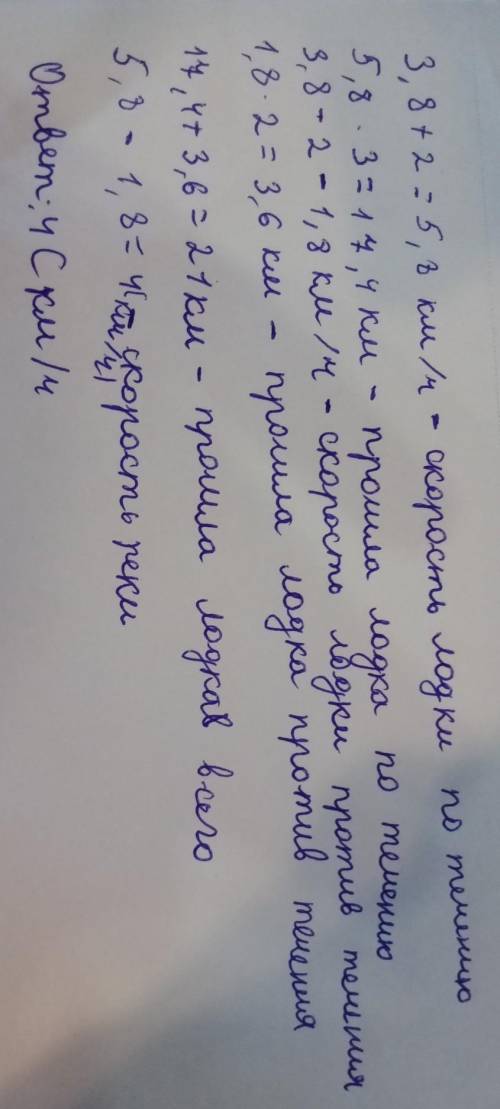 3,8 + 2 = 5,8 км/ч - скорость лодки по течению
5,8 · 3 = 17,4 км - прошла лодка по течению
3,8 - 2 = 1,8 км/ч - скорость лодки против течения
1,8 · 2 = 3,6 км - прошла лодка против течения
17,4 + 3,6 = 21 км - прошла лодка всего
5,8 - 1,8 = 4 км/ч - скорость реки
Ответ: 4 км/ч